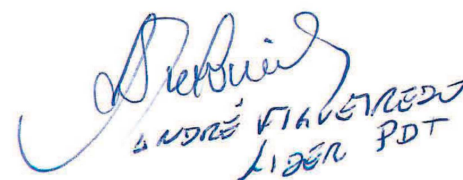 ANDRÉ FIGUEIREDO
LIDER PDT